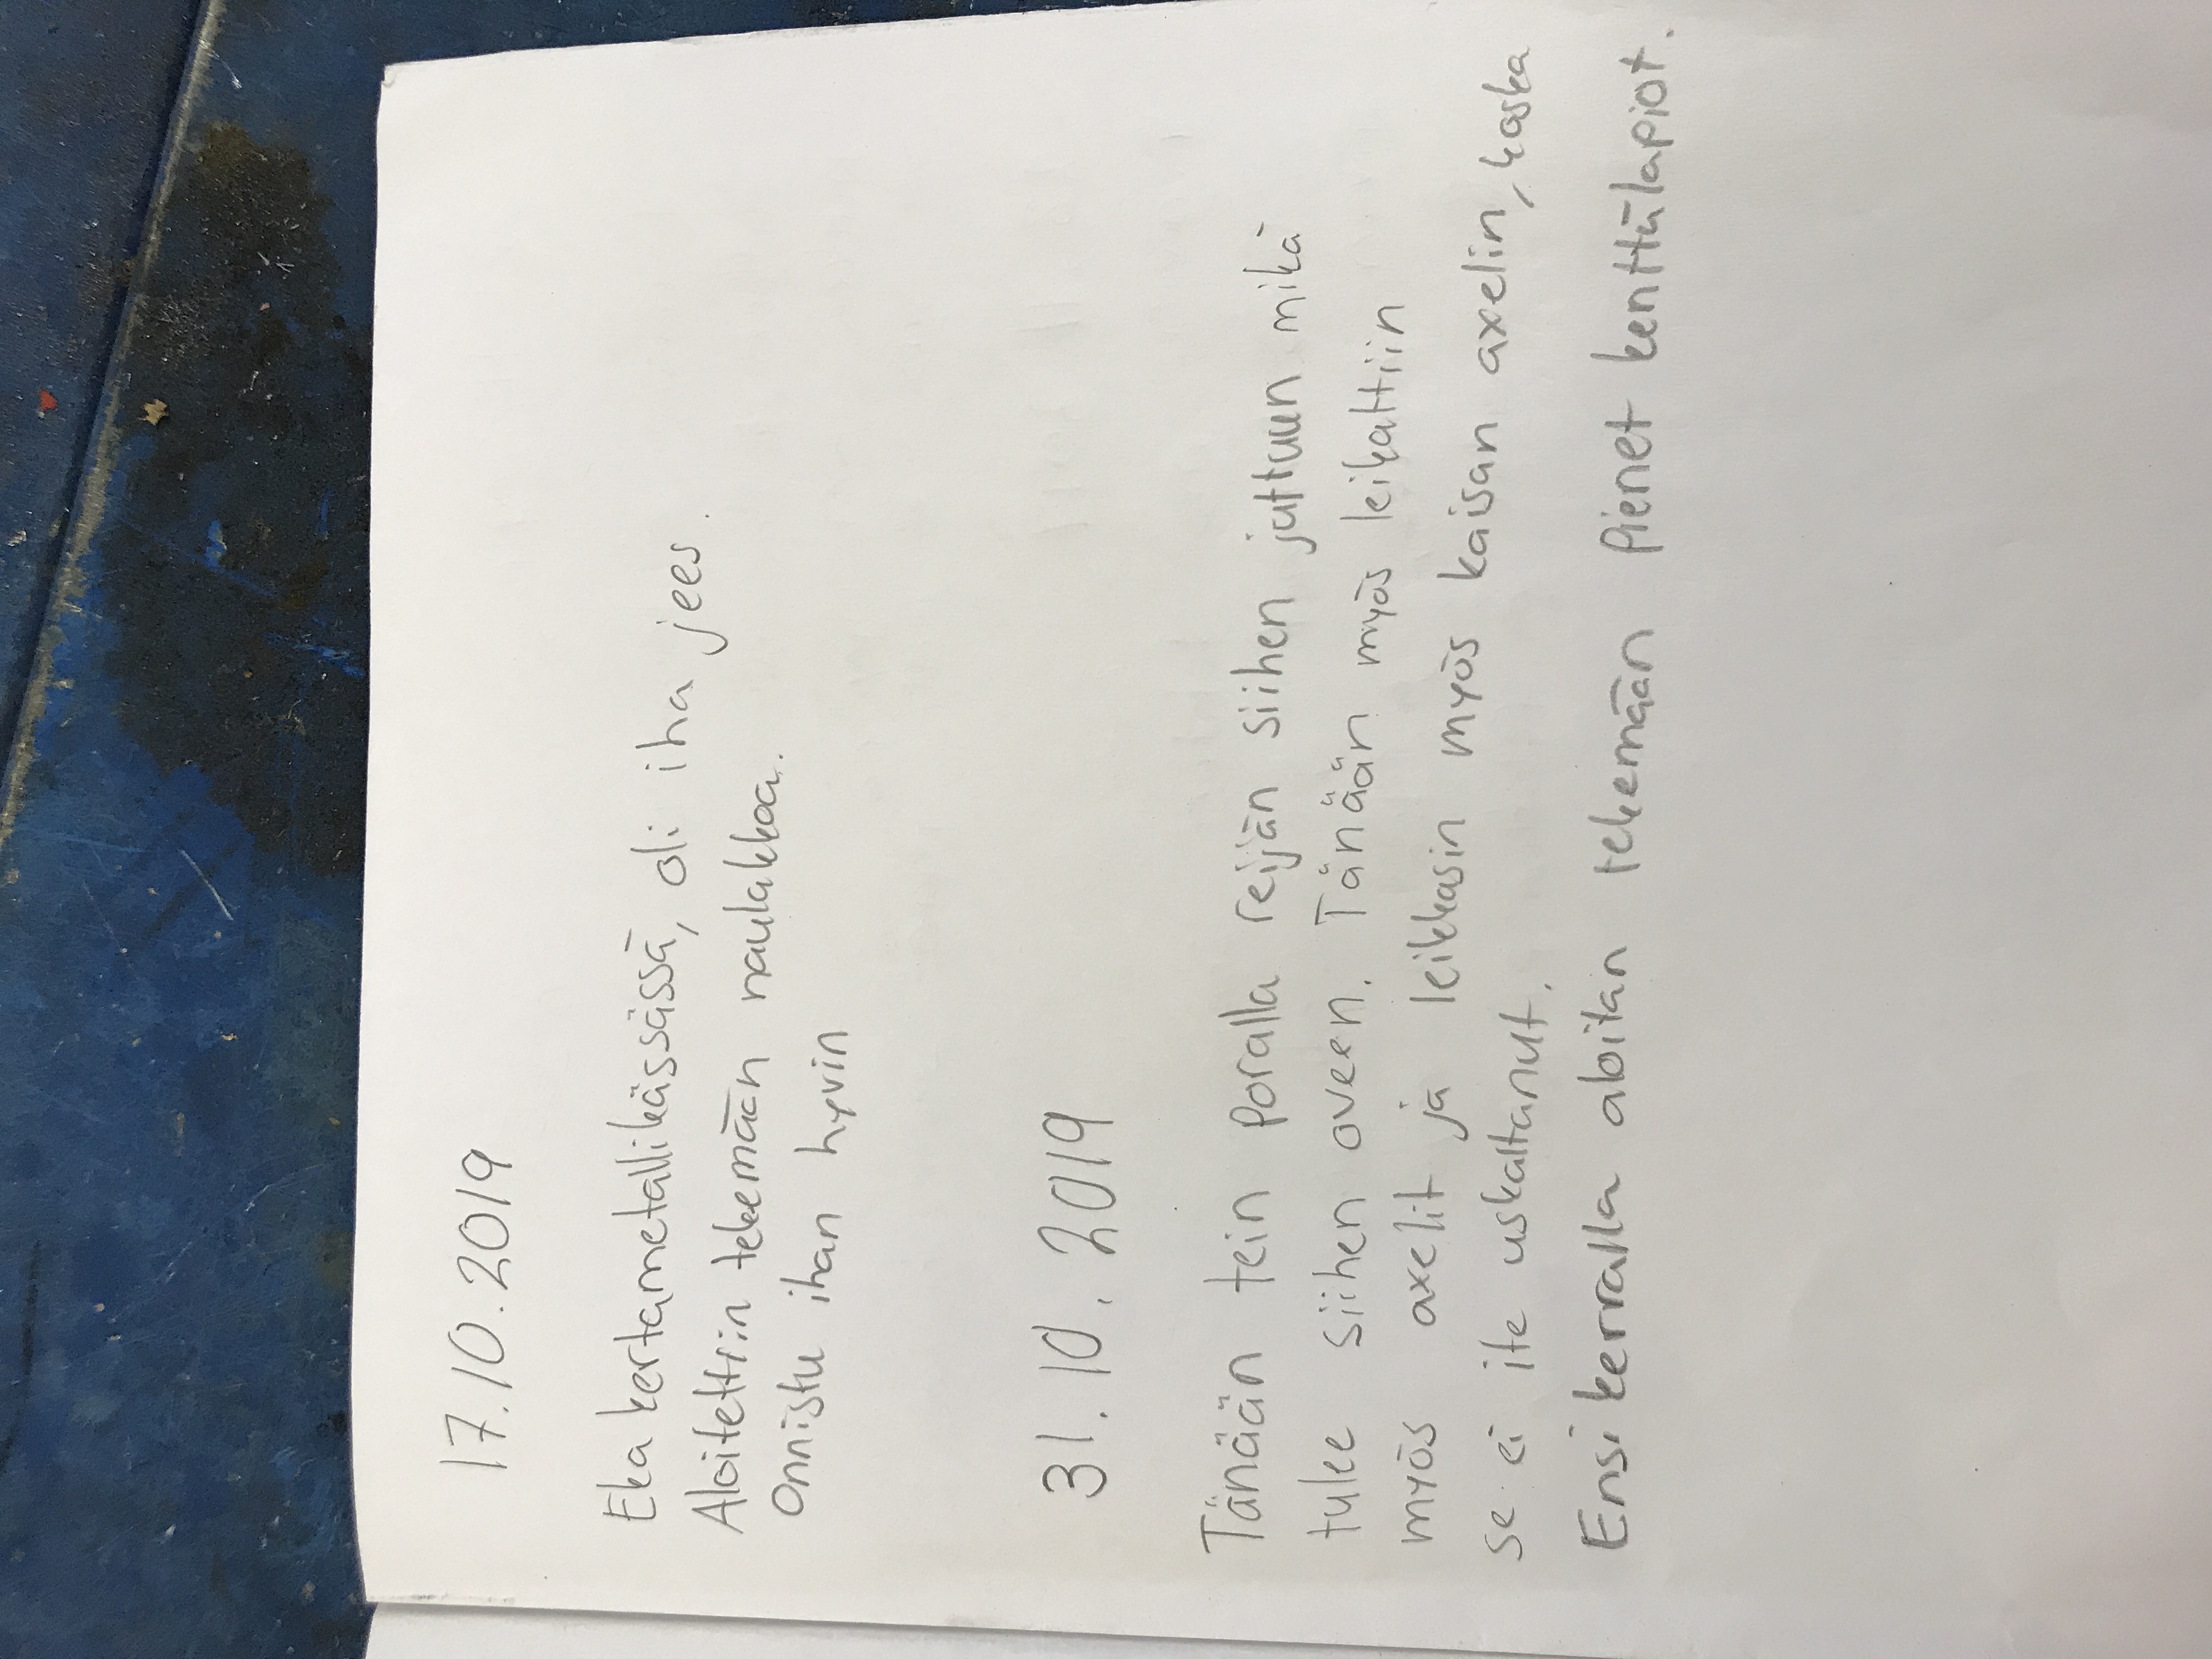 17.10.2019
Eka kertametallikässässä, oli iha jees.
Aloitettiin tekemään naulakkoa.
Onnistu ihan hyvin
31.10.2019
Tänään tein poralla reijän siihen juttuun mikä
tulee siihen oveen. Tänään myös leikattiin
myös axelit ja leikkasin myös kaisan axelin, koska
se ei ite uskaltanut.
Ensi kerralla aloitan tekemään Pienet kenttälapiot.